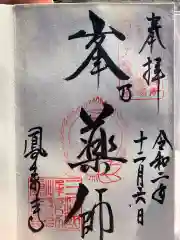 奉拝
令和二年
十二月六日
峯乃薬師
鳳来寺